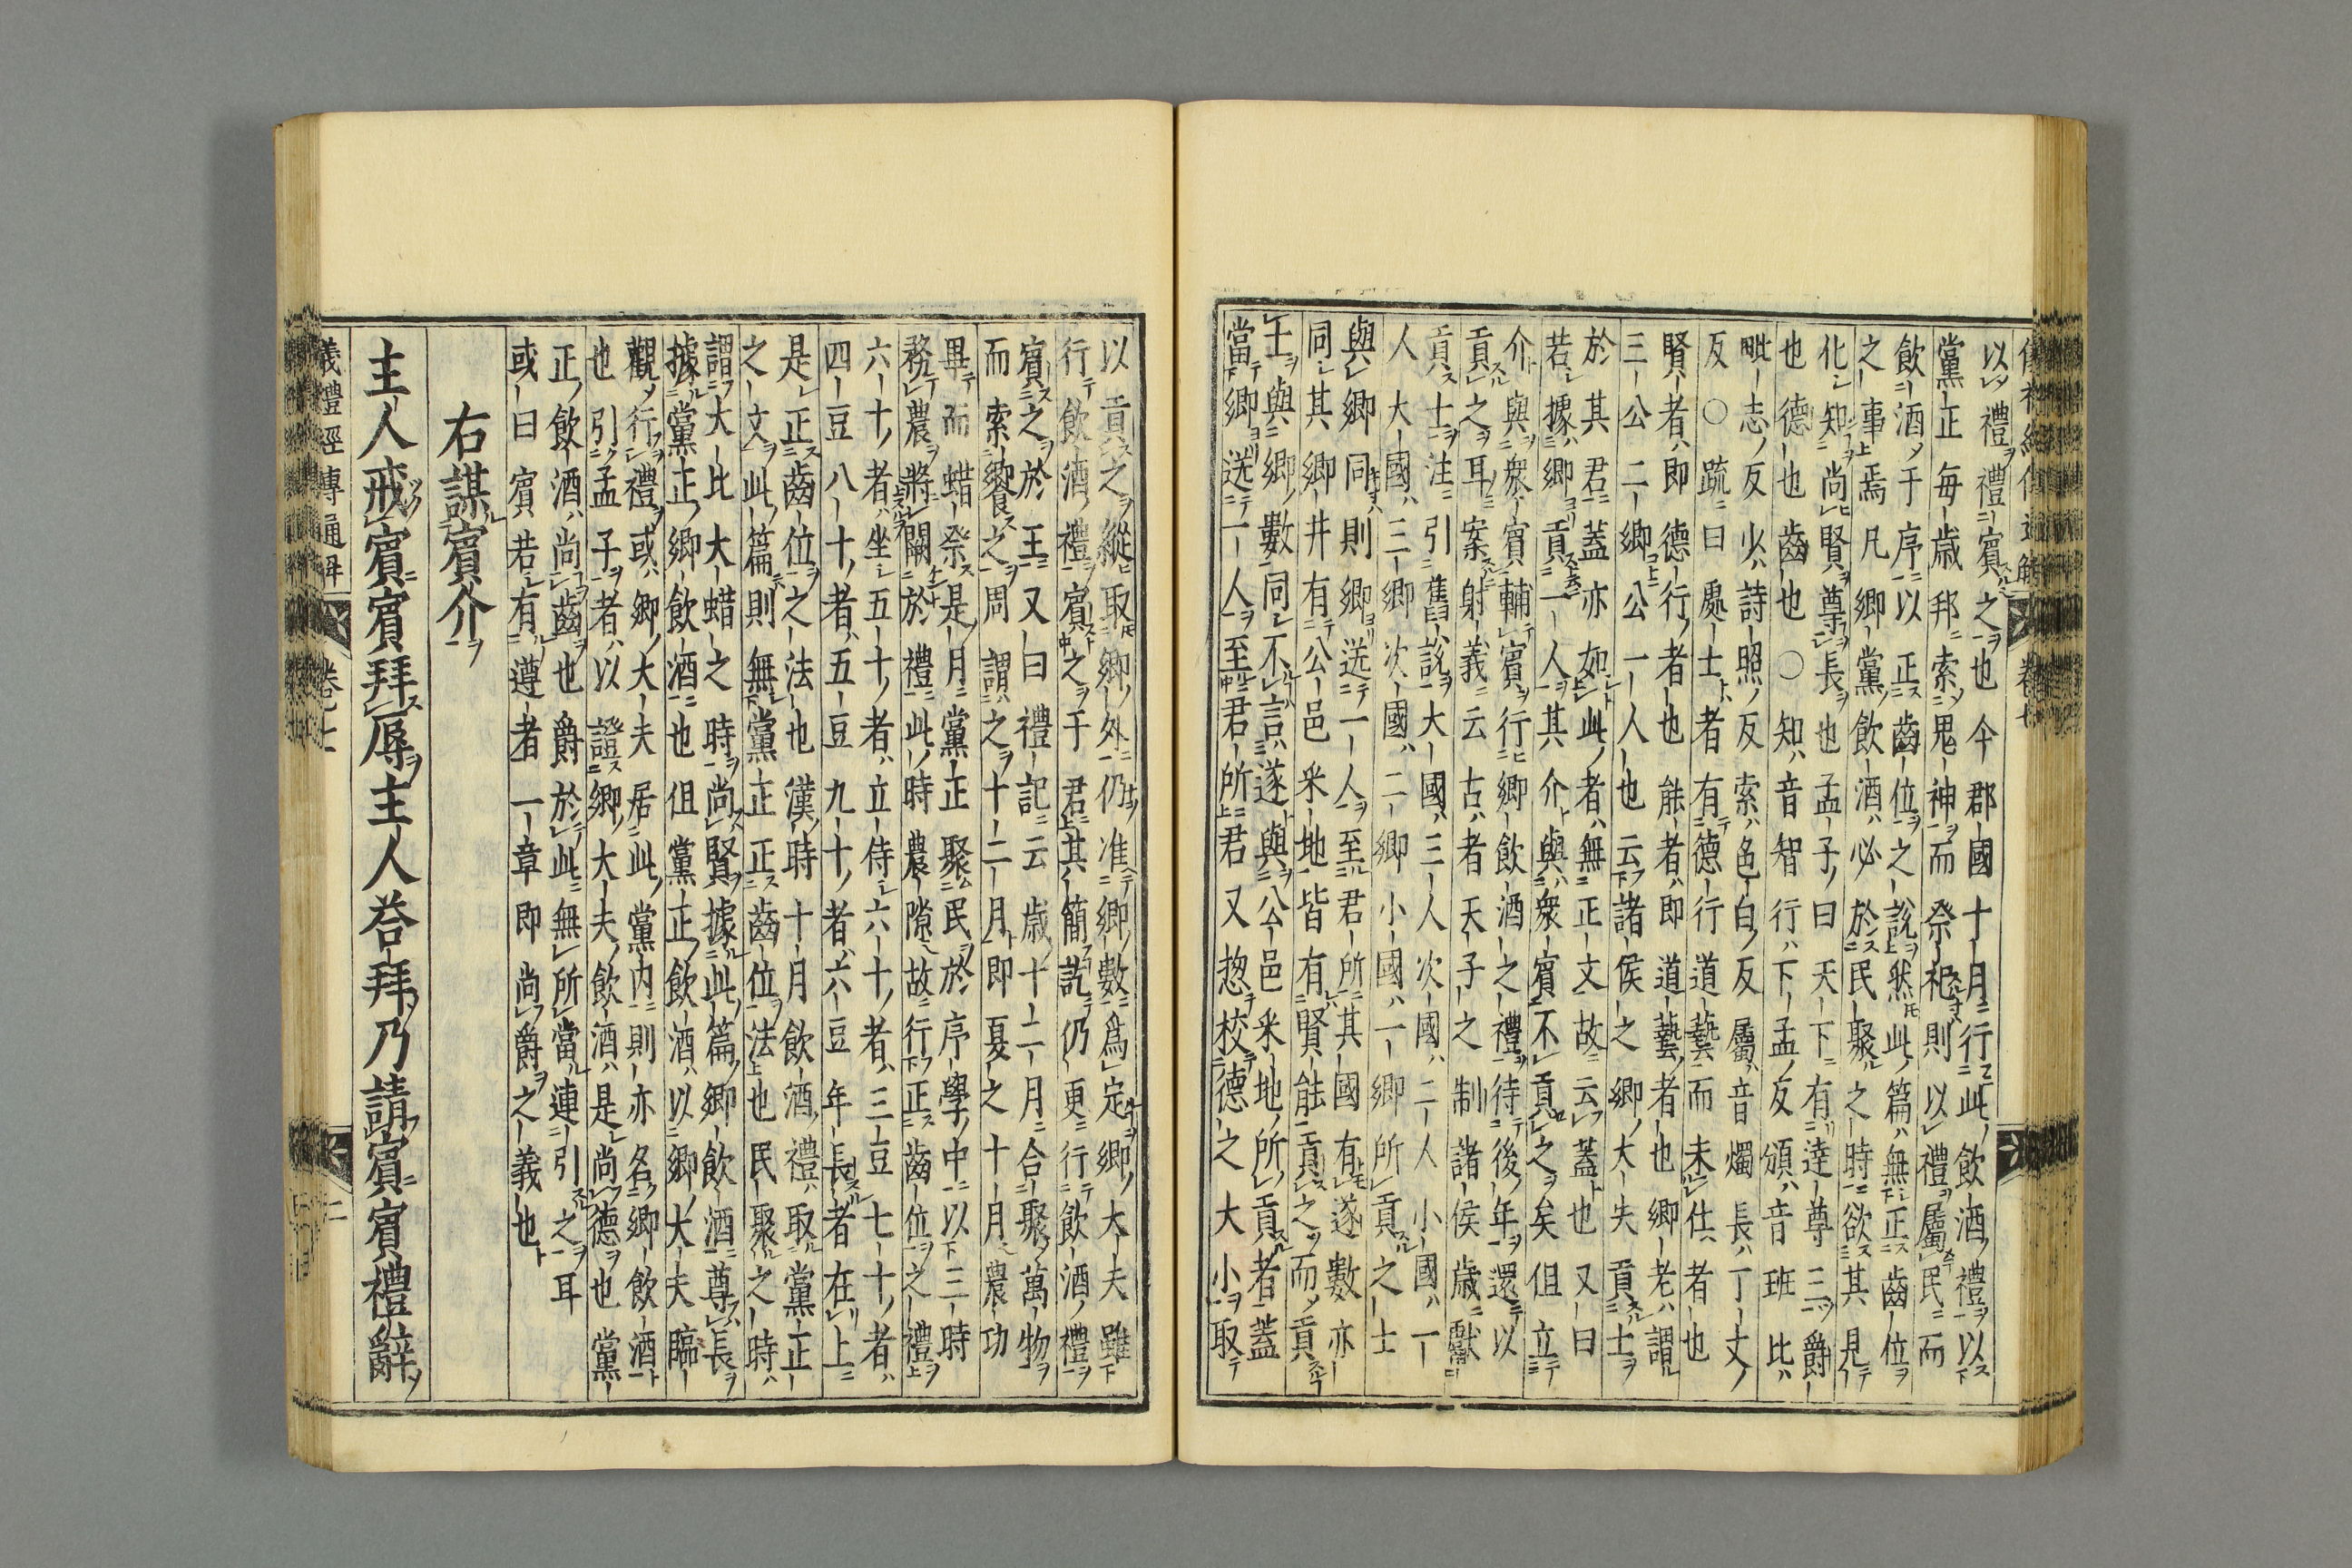 以禮禮賓之也今郡國十月行此飲酒禮以
黨正每歲邦索鬼神而祭祀則以禮屬民而
飲酒于序以正齒位之說然此篇無正齒位
之事焉凡鄉黨飲酒必於民聚之時欲其見
化知尚賢尊長也孟子曰天下有達尊三爵
也德也齒也〇知音智行下孟反頒音班比
毗志反反火詩照反索色白反屬音燭長丁丈
反〇疏曰處士者有德行道藝而未仕者也
賢者即德行者也能者即道藝者也鄉老謂
三公二鄉公一人也云諸侯之鄉大夫貢士
於其君蓋亦如此者無正文故云蓋也又曰
若據鄉貢一人其介與衆賓不貢之矣但立
介與衆賓輔賓行鄉飲酒之禮待後年還以
貢之耳案射義云古者天子之制諸侯歲獻
貢士注引舊說大國三人次國二人小國一
人大國三鄉次國二鄉小國一鄉所貢之士
與鄉同則鄉送一人至君所其國有遂數亦
同其鄉并有公邑采地皆有賢能貢之而貢
士與鄉數同不言遂與公邑采地所貢者蓋
當鄉送一人至君所君又揔校德之大小取
以貢之縱取鄉外仍准鄉數爲定鄉大夫雖
行飲酒禮賓之于君其簡訖仍更行飲酒禮
賓之於王又曰禮記云歲十二月合聚萬物
而索饗之周謂之十二月即夏之十月農功
畢而蜡祭是月黨正聚民於序學中以三時
務農將闕於禮此時農隙故行正齒位之禮
六十者坐五十者立侍六十者三豆七十者
四豆八十者五豆九十者六豆年長者在上
是正齒位之法也漢時十月飲酒禮取黨正
之文此篇則無黨正正齒位法也民聚之時
謂大比大蜡之時尚賢據此篇鄉飲酒尊長
據黨正鄉飲酒也但黨正飲酒以鄉大夫臨
觀行禮或鄉大夫居此黨内則亦名鄉飲酒
也引孟子者以證鄉大夫飲酒是尚德也黨
正飲酒尚齒也爵於此無所當連引之耳
或曰賓若有遵者一章即尚爵之義也
右謀賓介
主人戒賓賓拜辱主人荅拜乃請賓賓禮辭
儀禮經傳通解 卷七 二